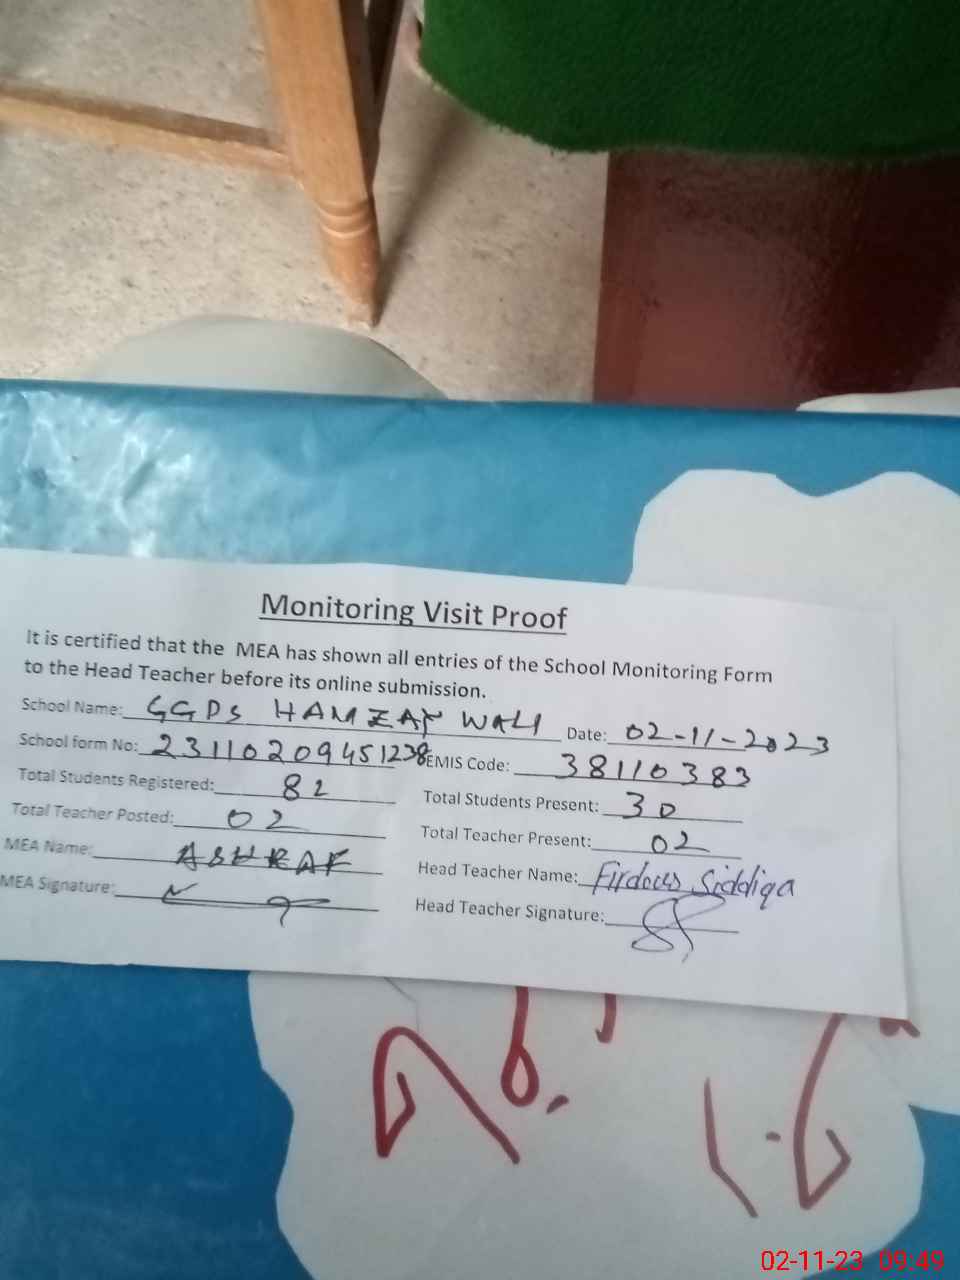 Monitoring Visit Proof
It is certified that the MEA has shown all entries of the School Monitoring Form
to the Head Teacher before its online submission.
School Name: GGPS HAMZAY WALI Date: 02-11-2023
School form No: 23110209451238 EMIS Code: 38110383
Total Students Registered: 82 Total Students Present: 30
Total Teacher Posted: 02 Total Teacher Present: 02
MEA Name: ASHRAF Head Teacher Name: Firdous Siddiqa
MEA Signature: Head Teacher Signature:
02-11-23 09:49